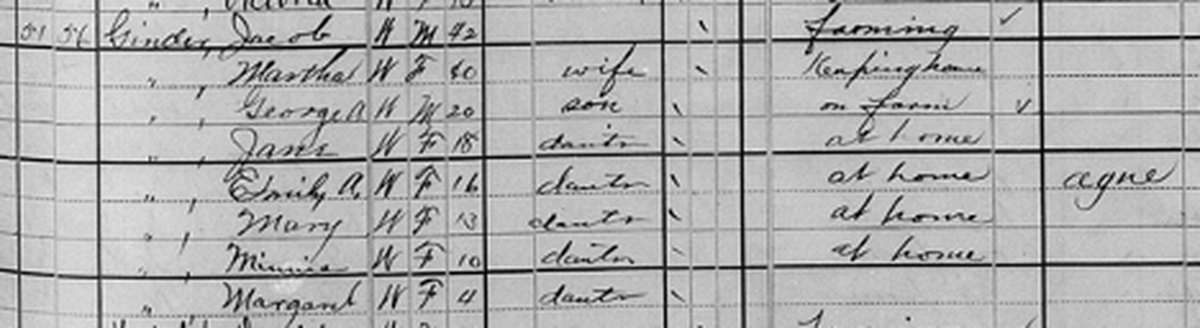 51 56 Ginder, Jacob W M 42 farming ✓
" , Martha W F 40 wife Keeping house
" , George A W M 20 son on farm ✓
" , Jane W F 18 dautr at home
" , Emily A. W F 16 dautr at home ague
" , Mary W F 13 dautr at home
" , Minnie W F 10 dautr at home
" Margaret W F 4 dautr